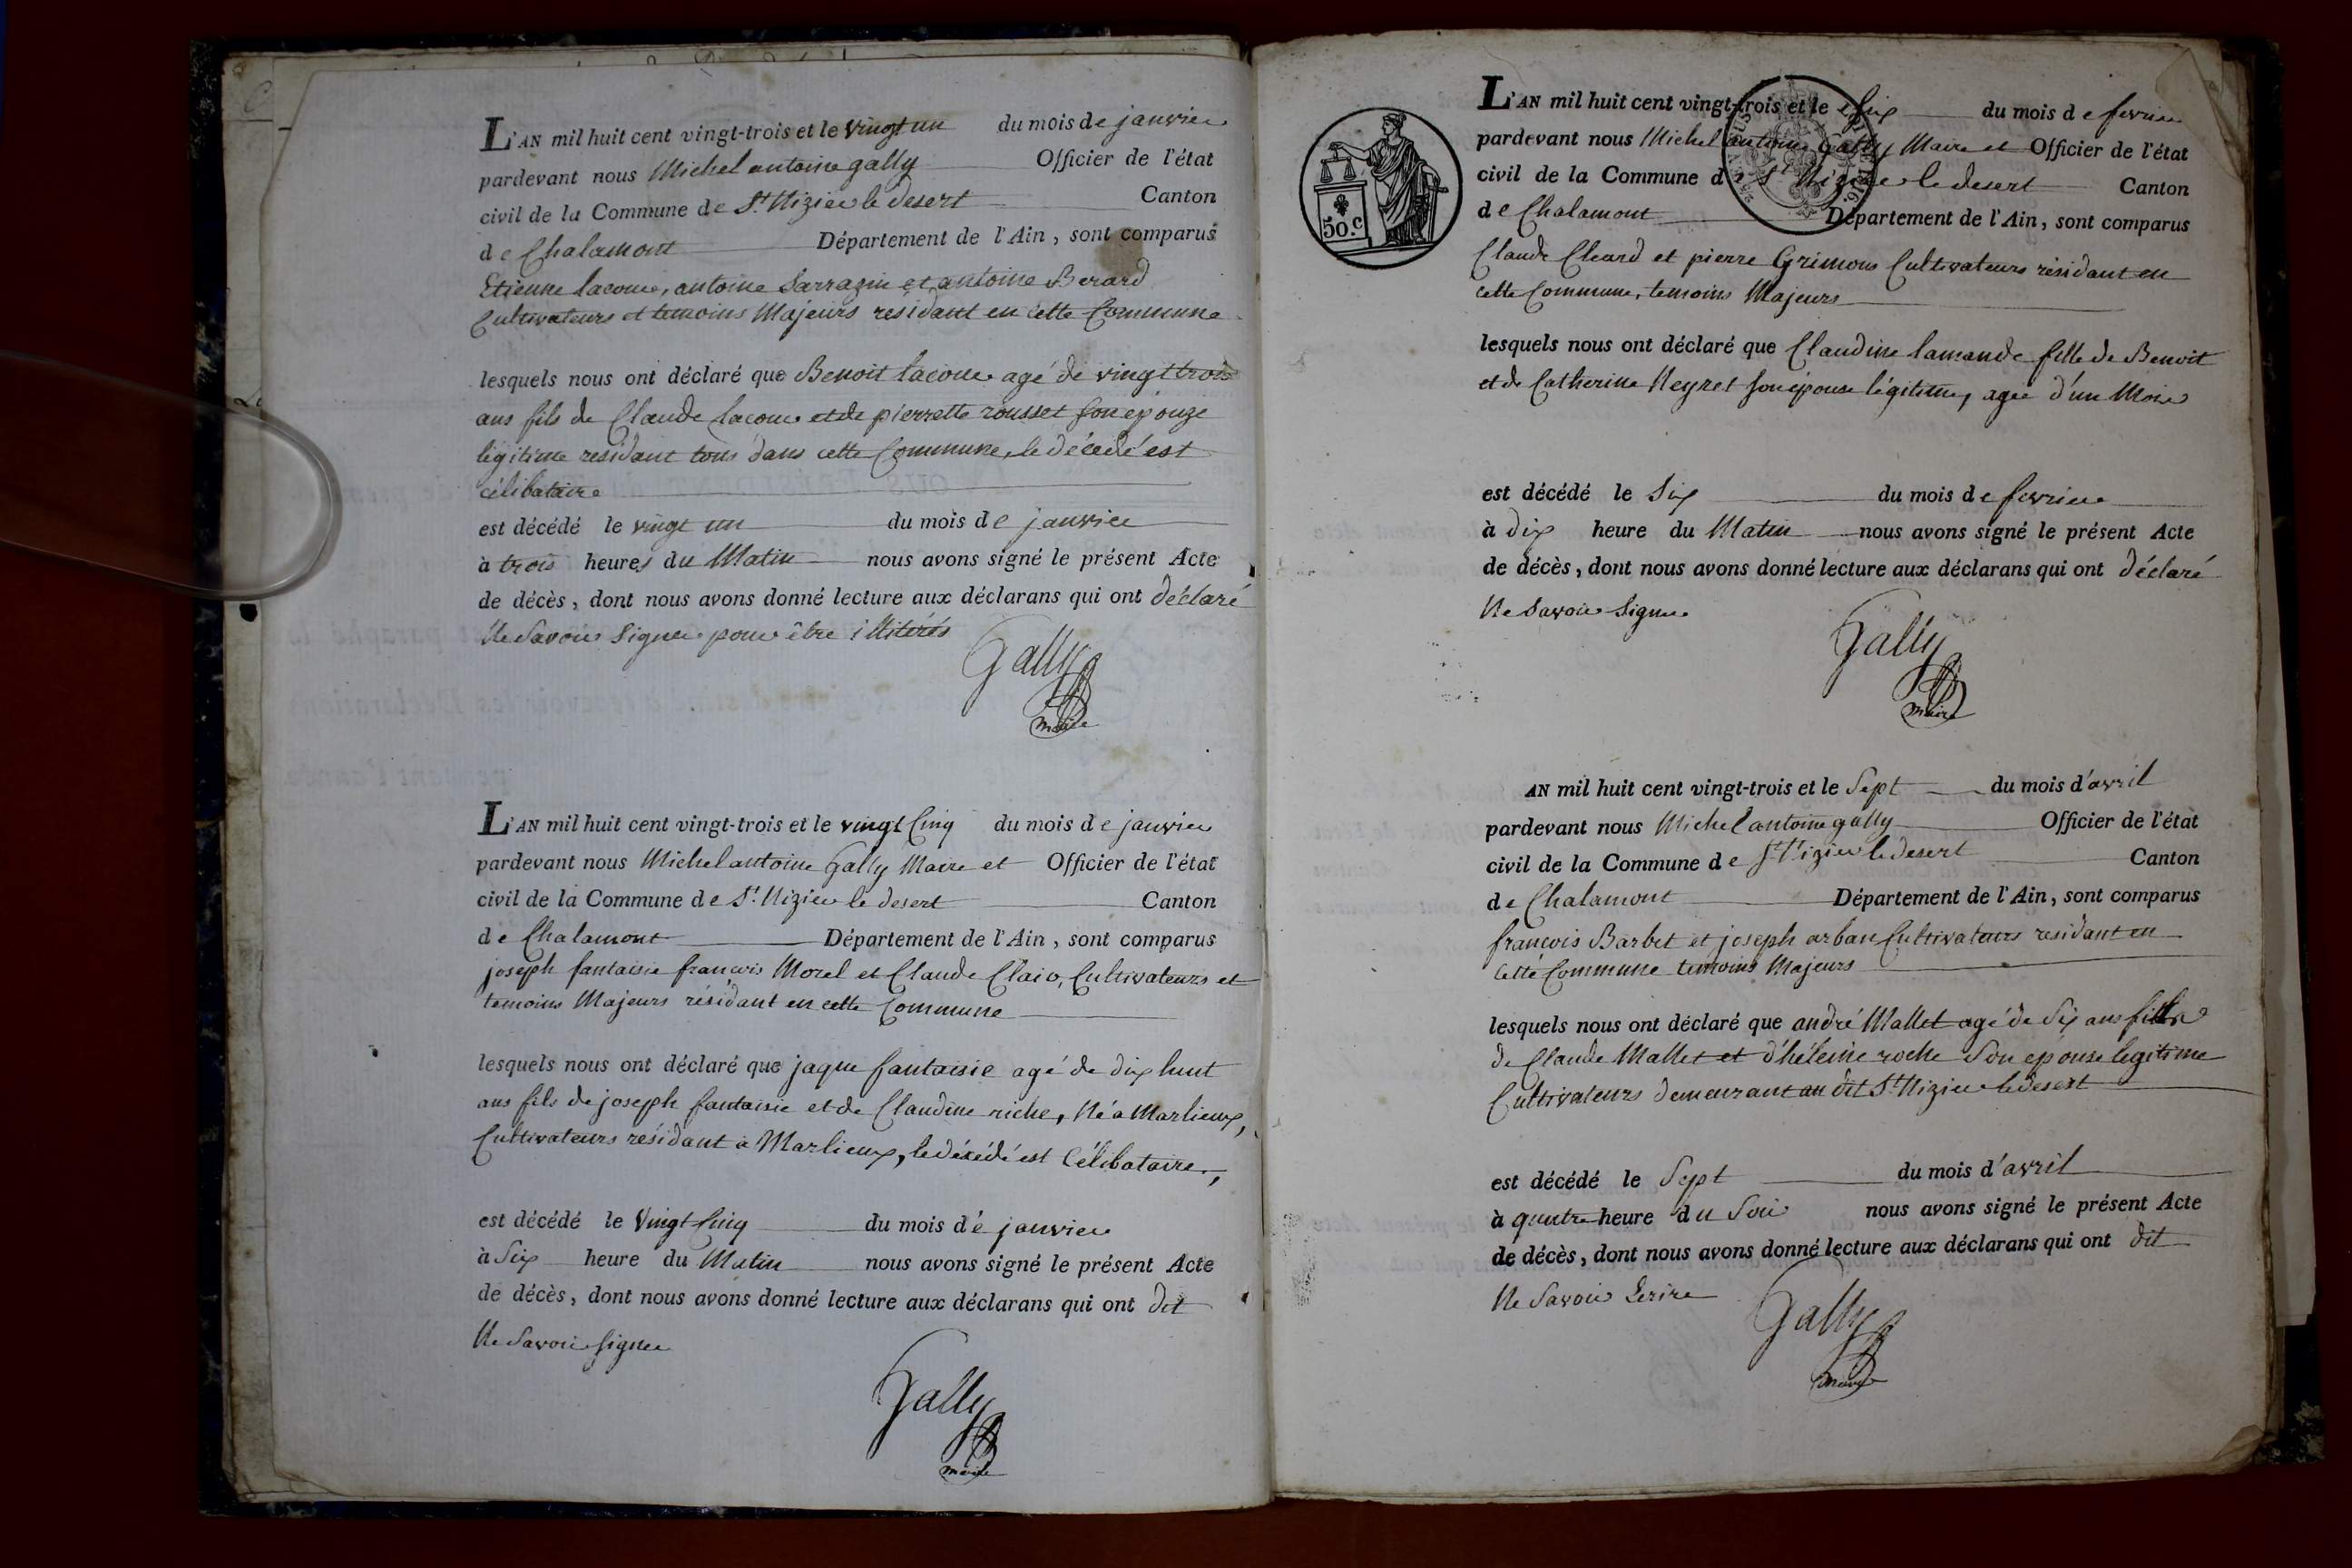 L'AN mil huit cent vingt-trois et le vingt un du mois de janvier
pardevant nous Michel antoine gally Officier de l'état
civil de la Commune de St. Nizier le desert Canton
de Chalamont Département de l'Ain, sont comparus
Etienne lacour, antoine Sarrazin et antoine Berard
Cultivateurs et temoins Majeurs residant en cette Commune
lesquels nous ont déclaré que Benoit lacour agé de vingt trois
ans fils de Claude lacour et de pierrette rousset son epouze
légitime residant tous dans cette Commune, le décédé est
célibataire
est décédé le vingt un du mois de janvier
à trois heures du Matin nous avons signé le présent Acte
de décès, dont nous avons donné lecture aux déclarans qui ont déclaré
Ne Savoir Signer pour être illitérés
Gally
maire
L'AN mil huit cent vingt-trois et le vingt Cinq du mois de janvier
pardevant nous Michel antoine Gally Maire et Officier de l'état
civil de la Commune de St. Nizier le desert Canton
de Chalamont Département de l'Ain, sont comparus
joseph fantaisie francois Morel et Claude Cultivateurs et
temoins Majeurs résidant en cette Commune
lesquels nous ont déclaré que jaque fantaisie agé de dix huit
ans fils de joseph fantaisie et de Claudine riche, Né a Marlieux,
Cultivateurs residant à Marlieux, le décédé est Célibataire,
est décédé le Vingt Cinq du mois de janvier
à Six heure du Matin nous avons signé le présent Acte
de décès, dont nous avons donné lecture aux déclarans qui ont dit
Ne Savoir signer
Gally
maire
50.C
L'AN mil huit cent vingt-trois et le Six du mois de fevrier
pardevant nous Michel antoine Gally Maire et Officier de l'état
civil de la Commune de St Nizier le desert Canton
de Chalamont Département de l'Ain, sont comparus
Claude et pierre Cultivateurs résidant en
cette Commune, temoins Majeurs
lesquels nous ont déclaré que Claudine lamande fille de Benoit
et de Catherine Neyret son épouse légitime, agée d'un Mois
est décédé le Six du mois de fevrier
à dix heure du Matin nous avons signé le présent Acte
de décès, dont nous avons donné lecture aux déclarans qui ont déclaré
Ne Savoir Signer
Gally
maire
AN mil huit cent vingt-trois et le Sept du mois d'avril
pardevant nous Michel antoine gally Officier de l'état
civil de la Commune de St Nizier le desert Canton
de Chalamont Département de l'Ain, sont comparus
francois Barbet et joseph arban Cultivateurs residant en
Cette Commune temoins Majeurs
lesquels nous ont déclaré que andré Mallet agé de Six ans
de Claude Mallet et d'héleine roche Son epouse legitime
Cultivateurs demeurant au dit St Nizier le desert
est décédé le Sept du mois d'avril
à quatre heure du Soir nous avons signé le présent Acte
de décès, dont nous avons donné lecture aux déclarans qui ont dit
Ne Savoir Ecrire
Gally
maire